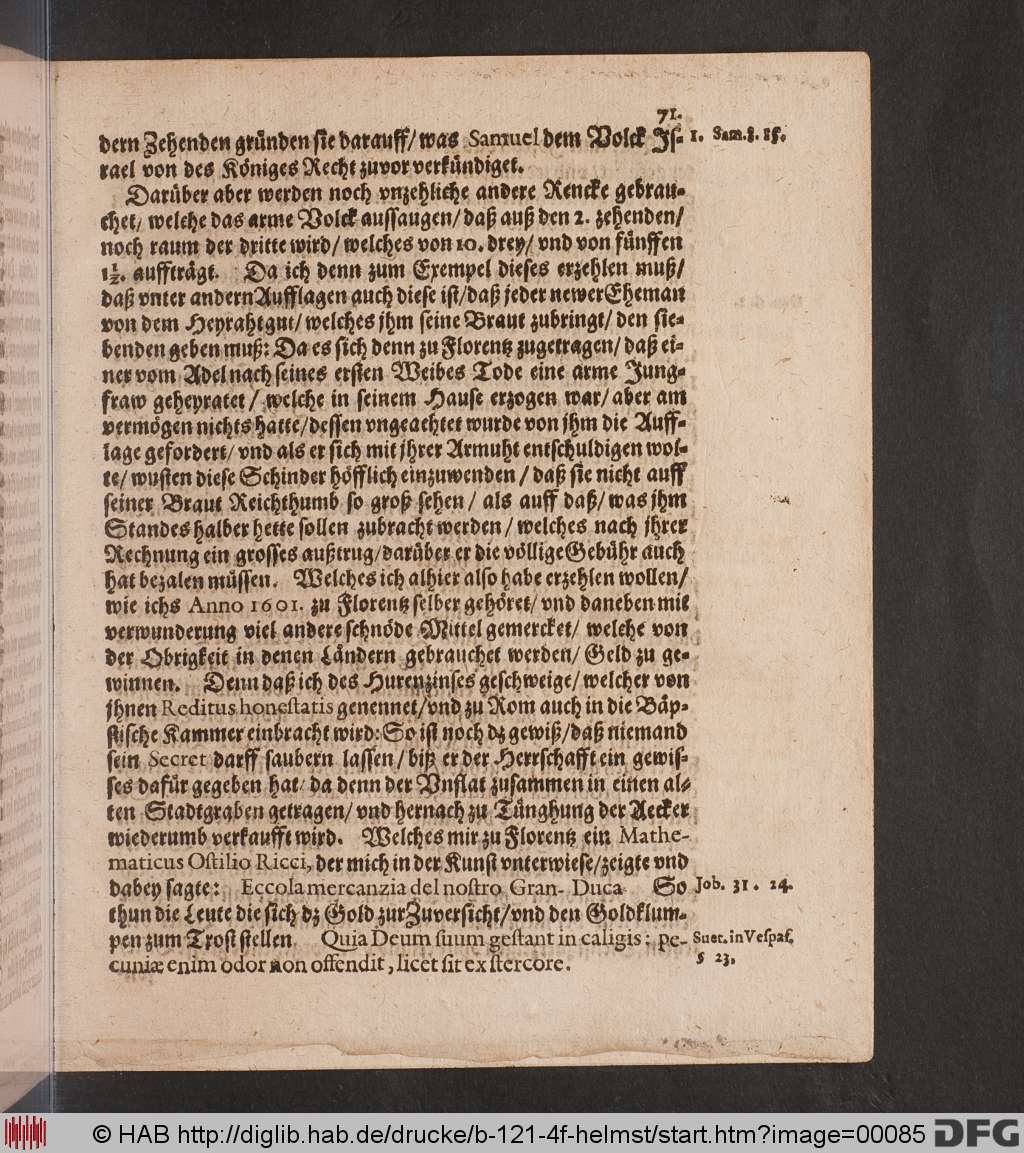 71.
dern Zehenden gründen sie darauff/ was Samuel dem Volck Js- 1. Sam. 8. 15.
rael von des Königes Recht zuvor verkündiget.
Darüber aber werden noch vnzehliche andere Rencke gebrau-
chet/ welche das arme Volck aussaugen/ daß auß den 2. zehenden/
noch raum der dritte wird/ welches von 10. drey/ vnd von fünffen
1½. auffträgt. Da ich denn zum Exempel dieses erzehlen muß/
daß vnter andern Aufflagen auch diese ist/ daß jeder newer Eheman
von dem Heyrahtgut/ welches jhm seine Braut zubringt/ den sie-
benden geben muß: Da es sich denn zu Florentz zugetragen/ daß ei-
ner vom Adel nach seines ersten Weibes Tode eine arme Jung-
fraw geheyratet/ welche in seinem Hause erzogen war/ aber am
vermögen nichts hatte/ dessen vngeachtet wurde von jhm die Auff-
lage gefordert/ vnd als er sich mit jhrer Armuht entschuldigen wol-
te/ wusten diese Schinder höfflich einzuwenden/ daß sie nicht auff
seiner Braut Reichthumb so groß sehen/ als auff daß/ was jhm
Standes halber hette sollen zubracht werden/ welches nach jhrer
Rechnung ein grosses außtrug/ darüber er die völlige Gebühr auch
hat bezalen müssen. Welches ich alhier also habe erzehlen wollen/
wie ichs Anno 1601. zu Florentz selber gehöret/ vnd daneben mit
verwunderung viel andere schnöde Mittel gemercket/ welche von
der Obrigkeit in denen Ländern gebrauchet werden/ Geld zu ge-
winnen. Denn daß ich des Hurenzinses geschweige/ welcher von
jhnen Reditus honestatis genennet/ vnd zu Rom auch in die Bäp-
stische Kammer einbracht wird: So ist noch dz gewiß/ daß niemand
sein Secret darff saubern lassen/ biß er der Herrschafft ein gewis-
ses dafür gegeben hat/ da denn der Vnflat zusammen in einen al-
ten Stadtgraben getragen/ vnd hernach zu Tünghung der Aecker
wiederumb verkaufft wird. Welches mir zu Florentz ein Mathe-
maticus Ostilio Ricci, der mich in der Kunst vnterwiese/ zeigte vnd
dabey sagte: Eccola mercanzia del nostro Gran-Duca So Job. 31. 24.
thun die Leute die sich dz Gold zur Zuversicht/ vnd den Goldklum-
pen zum Trost stellen Quia Deum suum gestant in caligis: pe- Suet. in Vespas.
cuniæ enim odor non offendit, licet sit ex stercore. § 23.
© HAB http://diglib.hab.de/drucke/b-121-4f-helmst/start.htm?image=00085 DFG